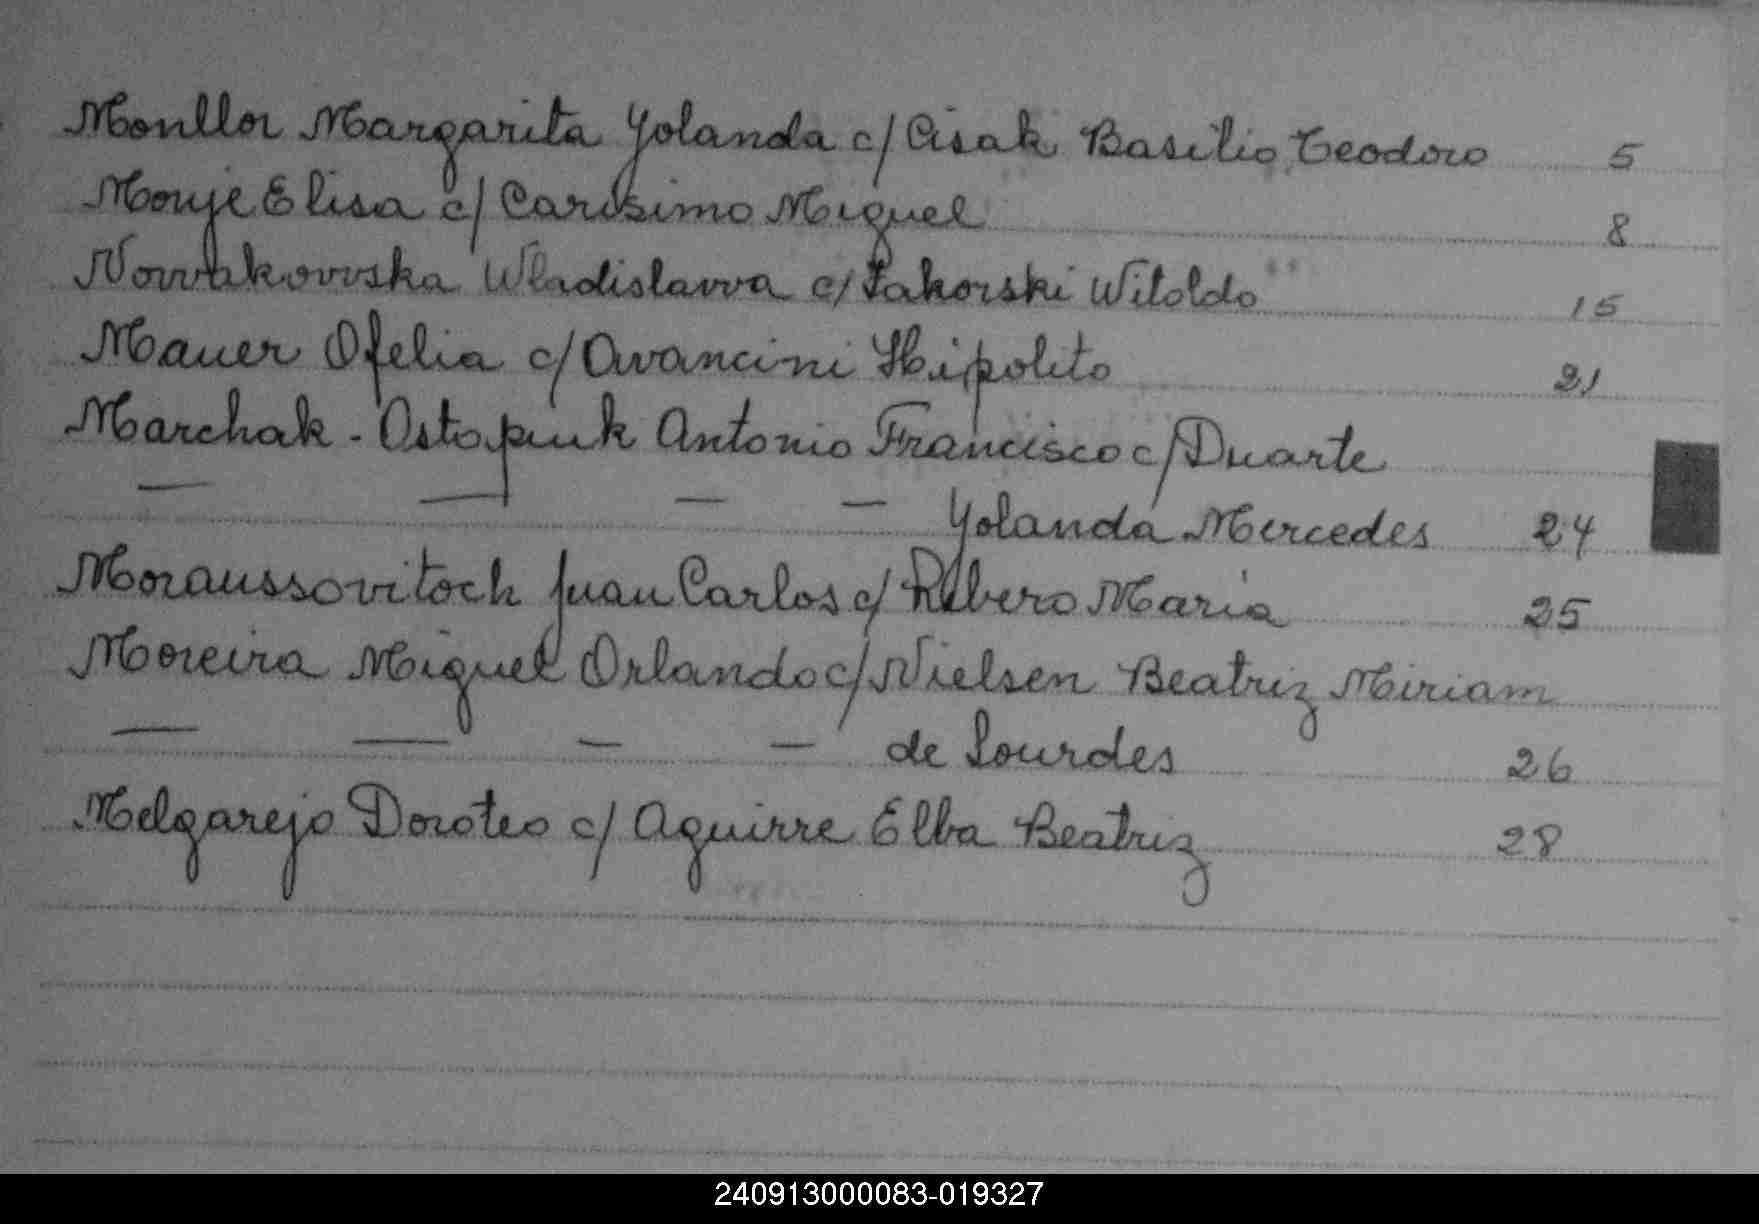 Monllor Margarita Yolanda c/ Cisak Basilio Teodoro 5
Monje Elisa c/ Carissimo Miguel 8
Nowakowska Wladislawa c/ Sakorski Witoldo 15
Mauer Ofelia c/ Avancini Hipolito 21
Marchak - Ostopiuk Antonio Francisco c/ Duarte
— — — — Yolanda Mercedes 24
Moraussovitoch Juan Carlos c/ Ribero Maria 25
Moreira Miguel Orlando c/ Nielsen Beatriz Miriam
— — — — de Lourdes 26
Melgarejo Doroteo c/ Aguirre Elba Beatriz 28
240913000083-019327